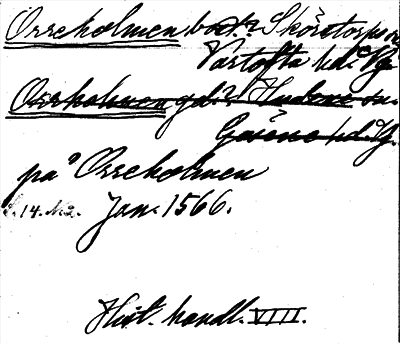 Orreholmen bost. i Skörstorps sn
Vartofta hd. Vg
Orreholmen gd. i Hudene sn.
Gäsene hd. Vg.
på Orreholmen
s. 14. N:o 2. Jan. 1566.
Hist. handl. VIII.